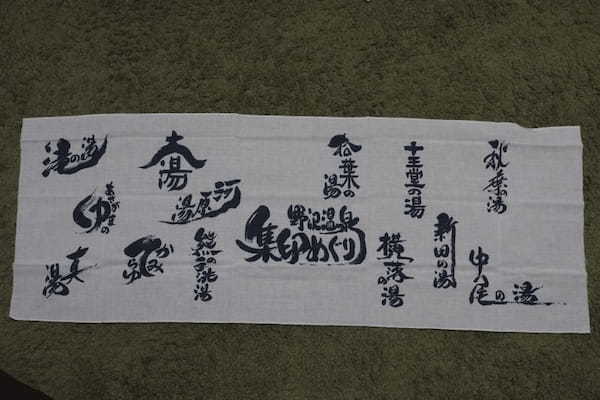 滝の湯
大湯
松葉の湯
十王堂の湯
秋葉の湯
あさがまの
ゆ
河原湯
野沢温泉
集印めぐり
新田の湯
真湯
かみ
てらゆ
熊の手洗湯
横落の湯
中尾の湯